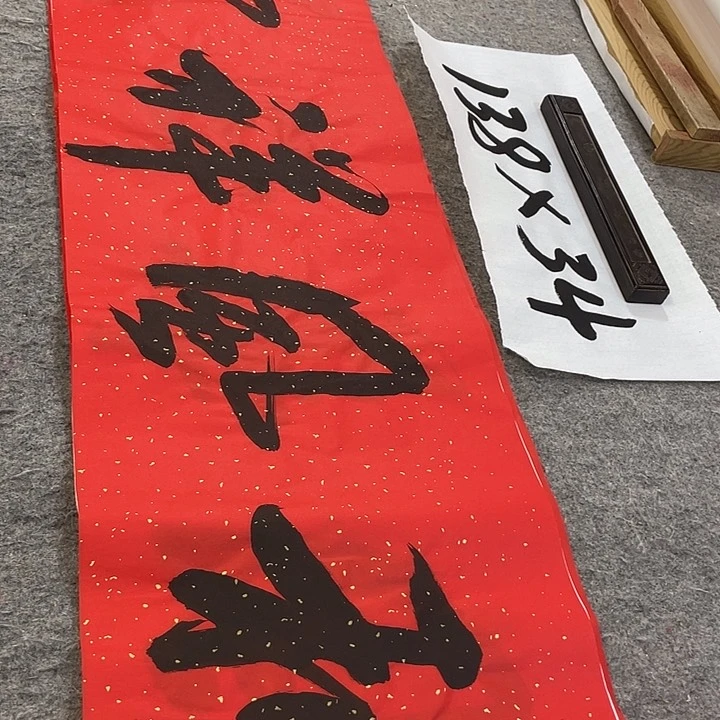 風祥
138×34